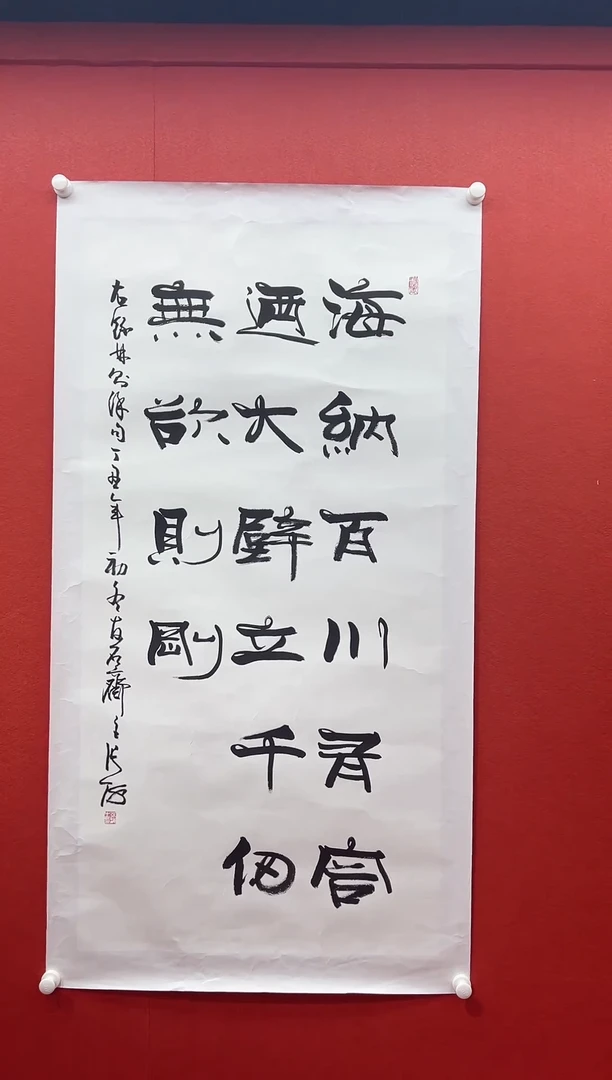 海納百川有容
迺大壁立千仞
無欲則剛
右錄林則徐句丁丑年初冬